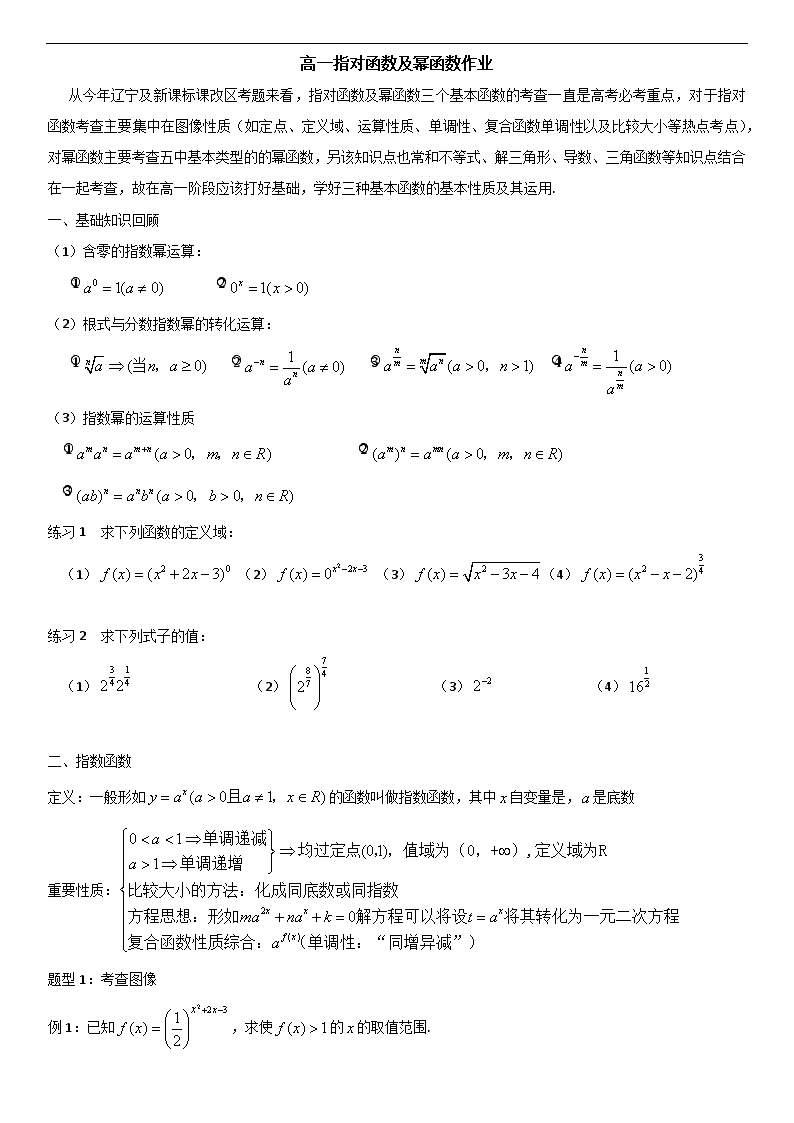 高一指对函数及幂函数作业
从今年辽宁及新课标课改区考题来看，指对函数及幂函数三个基本函数的考查一直是高考必考重点，对于指对
函数考查主要集中在图像性质（如定点、定义域、运算性质、单调性、复合函数单调性以及比较大小等热点考点），
对幂函数主要考查五中基本类型的的幂函数，另该知识点也常和不等式、解三角形、导数、三角函数等知识点结合
在一起考查，故在高一阶段应该打好基础，学好三种基本函数的基本性质及其运用.
一、基础知识回顾
（1）含零的指数幂运算：
① a^0 = 1(a ≠ 0) ② 0^x = 1(x > 0)
（2）根式与分数指数幂的转化运算：
① \sqrt[n]{a} ⇒ (当n，a ≥ 0) ② a^{-n} = \frac{1}{a^n}(a ≠ 0) ③ a^{\frac{n}{m}} = \sqrt[m]{a^n}(a > 0，n > 1) ④ a^{-\frac{n}{m}} = \frac{1}{a^{\frac{n}{m}}}(a > 0)
（3）指数幂的运算性质
① a^m a^n = a^{m+n}(a > 0，m，n ∈ R) ② (a^m)^n = a^{mn}(a > 0，m，n ∈ R)
③ (ab)^n = a^n b^n(a > 0，b > 0，n ∈ R)
练习1 求下列函数的定义域：
（1）f(x) = (x^2 + 2x − 3)^0 （2）f(x) = 0^{x^2−2x−3} （3）f(x) = \sqrt{x^2 − 3x − 4} （4）f(x) = (x^2 − x − 2)^{\frac{3}{4}}
练习2 求下列式子的值：
（1）2^{\frac{3}{4}}2^{\frac{1}{4}} （2）\left(2^{\frac{8}{7}}\right)^{\frac{7}{4}} （3）2^{−2} （4）16^{\frac{1}{2}}
二、指数函数
定义：一般形如 y = a^x(a > 0且a ≠ 1，x ∈ R) 的函数叫做指数函数，其中 x 自变量是，a 是底数
0 < a < 1 ⇒ 单调递减
a > 1 ⇒ 单调递增
⇒ 均过定点(0,1)，值域为（0，+∞）,定义域为R
重要性质：
比较大小的方法：化成同底数或同指数
方程思想：形如ma^{2x} + na^x + k = 0解方程可以将设t = a^x将其转化为一元二次方程
复合函数性质综合：a^{f(x)}（单调性：“同增异减”）
题型1：考查图像
例1：已知 f(x) = \left(\frac{1}{2}\right)^{x^2+2x−3}，求使 f(x) > 1 的 x 的取值范围.